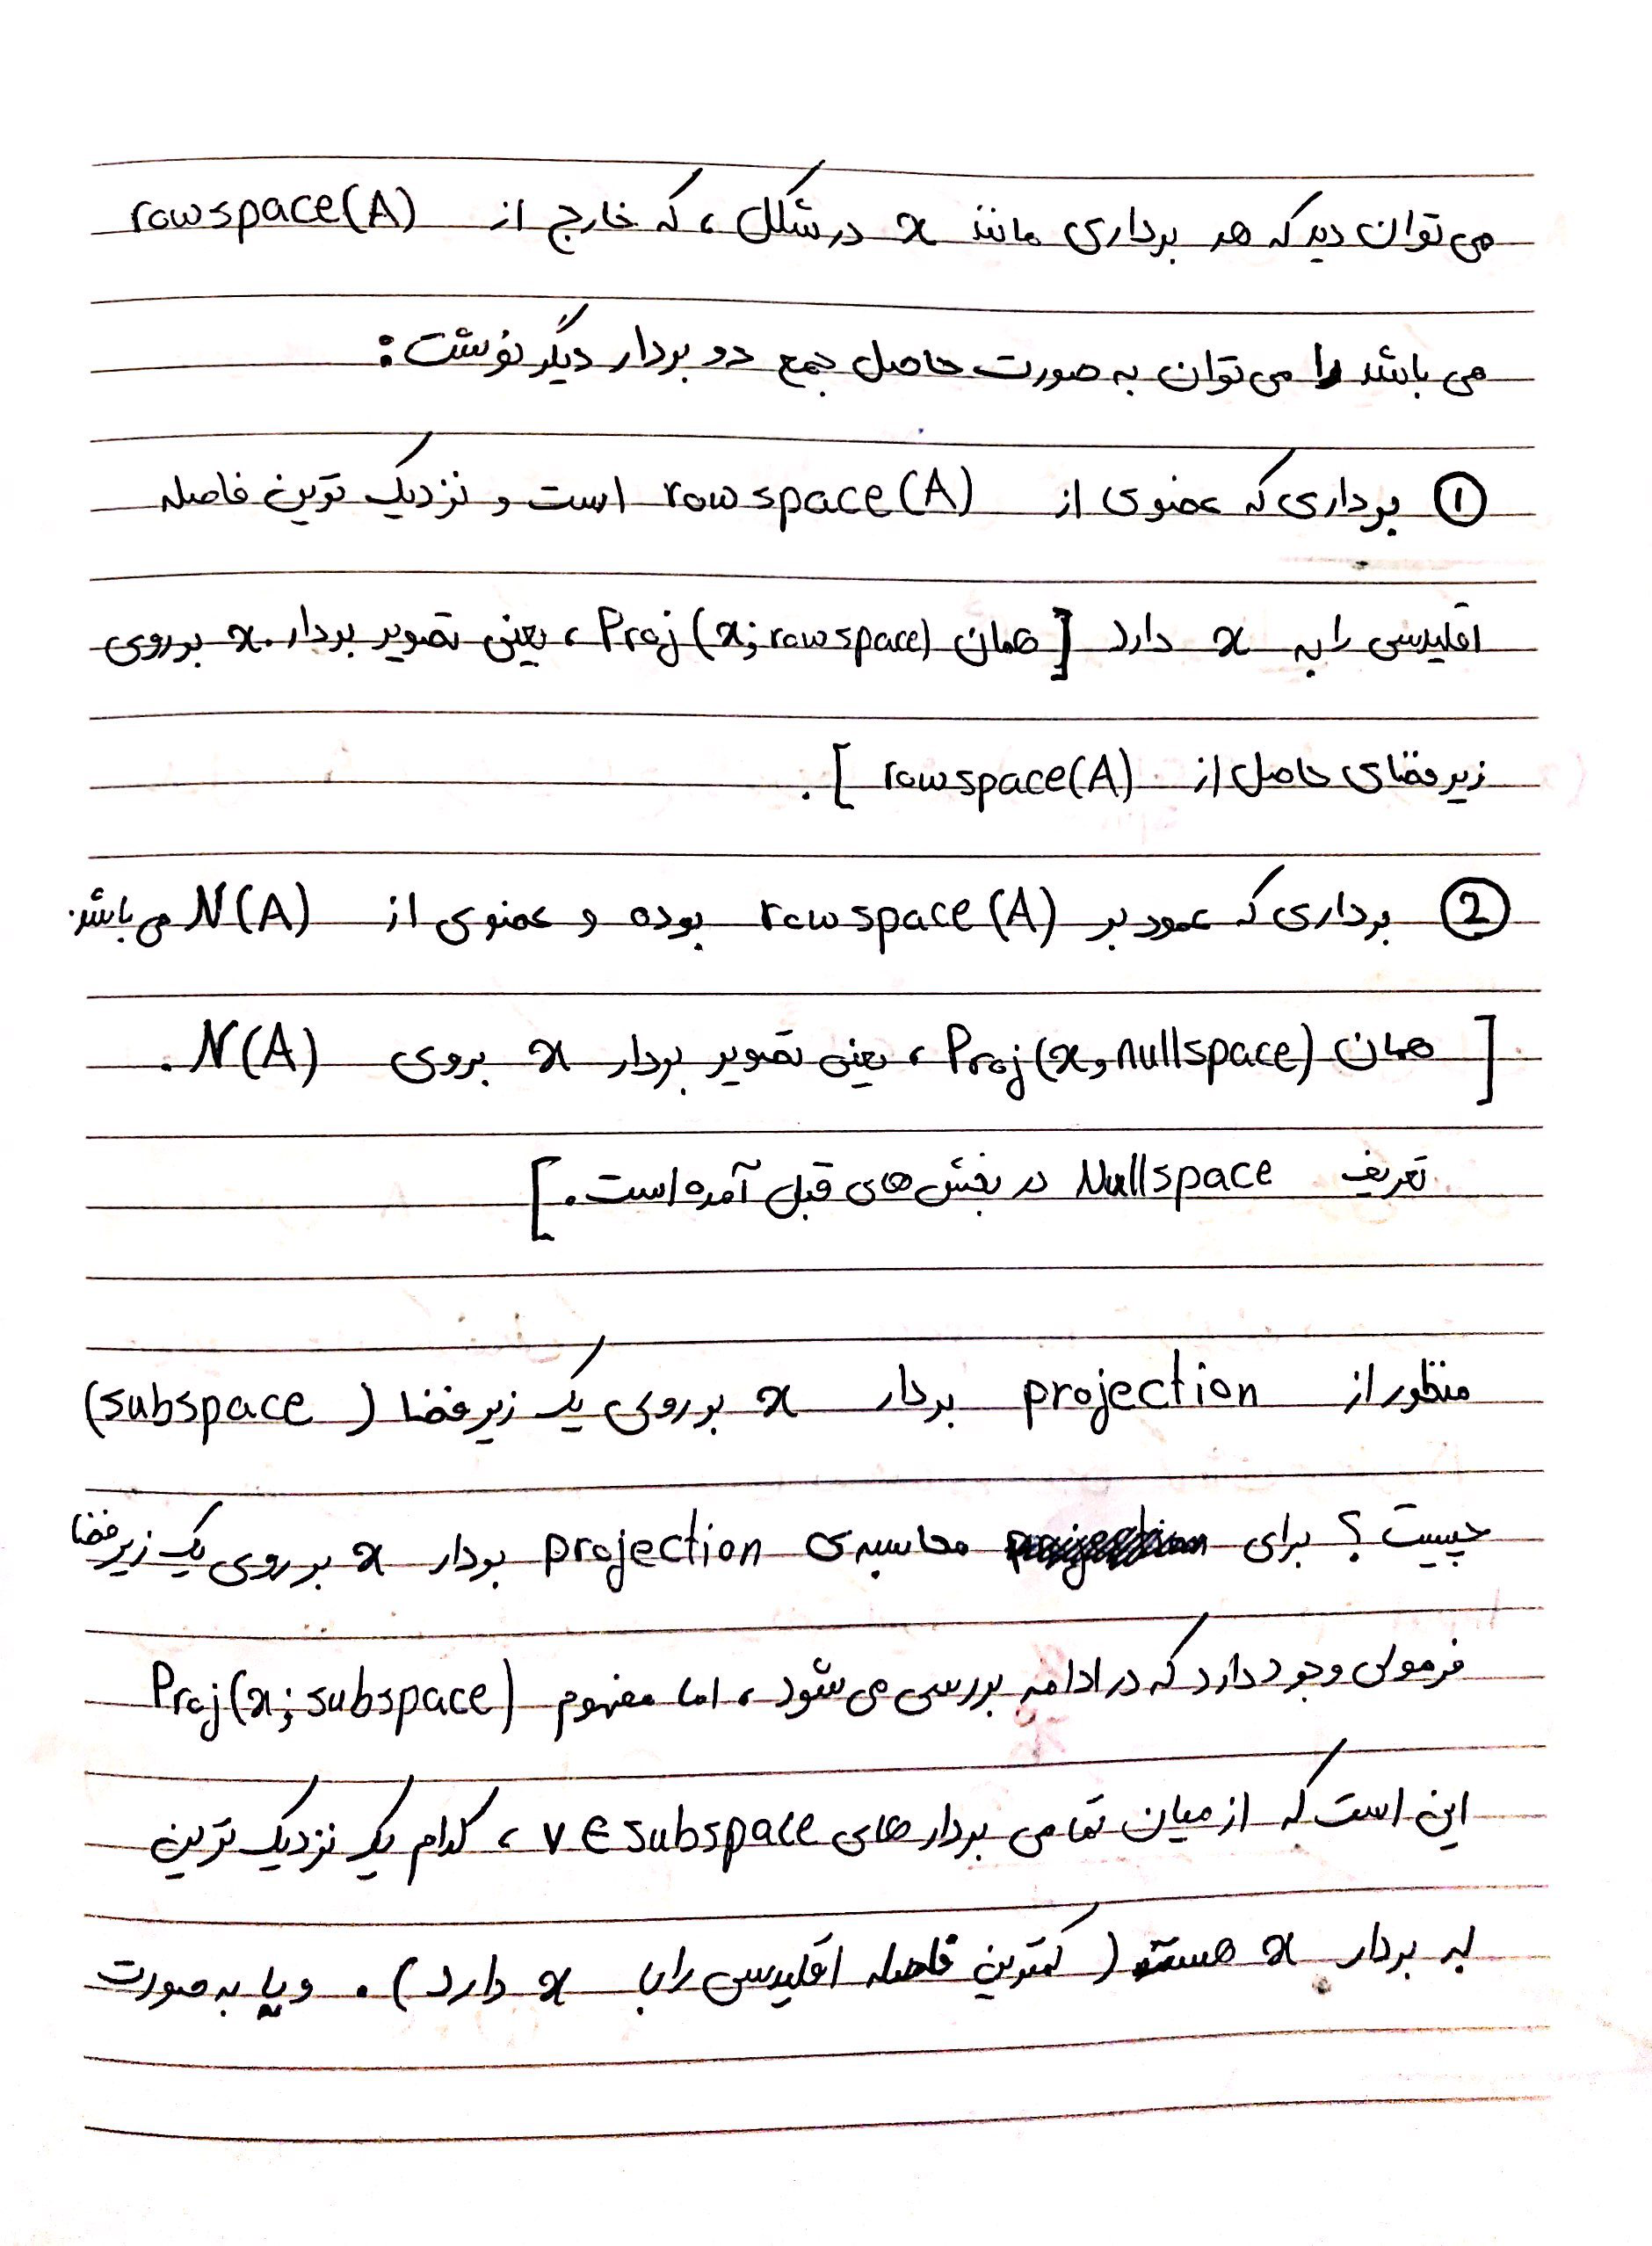 می توان دید که هر برداری مانند x در شکل ، که خارج از rowspace(A)
می باشد را می توان به صورت حاصل جمع دو بردار دیگر نوشت :
① برداری که عضوی از rowspace(A) است و نزدیک ترین فاصله
اقلیدسی را به x دارد [ همان Proj(x; rowspace) ، یعنی تصویر بردار x بر روی
زیرفضای حاصل از rowspace(A) ] .
② برداری که عمود بر rowspace(A) بوده و عضوی از N(A) می باشد.
[ همان Proj(x, nullspace) ، یعنی تصویر بردار x بروی N(A) .
تعریف Nullspace در بخش های قبل آمده است . ]
منظور از projection بردار x بر روی یک زیرفضا ( subspace)
چیست ؟ برای محاسبه ی projection بردار x بر روی یک زیرفضا
فرمولی وجود دارد که در ادامه بررسی می شود ، اما مفهوم Proj(x; subspace)
این است که از میان تمامی بردارهای v ∈ subspace ، کدام یک نزدیک ترین
به بردار x هستند ( کمترین فاصله اقلیدسی را با x دارد ) . و یا به صورت